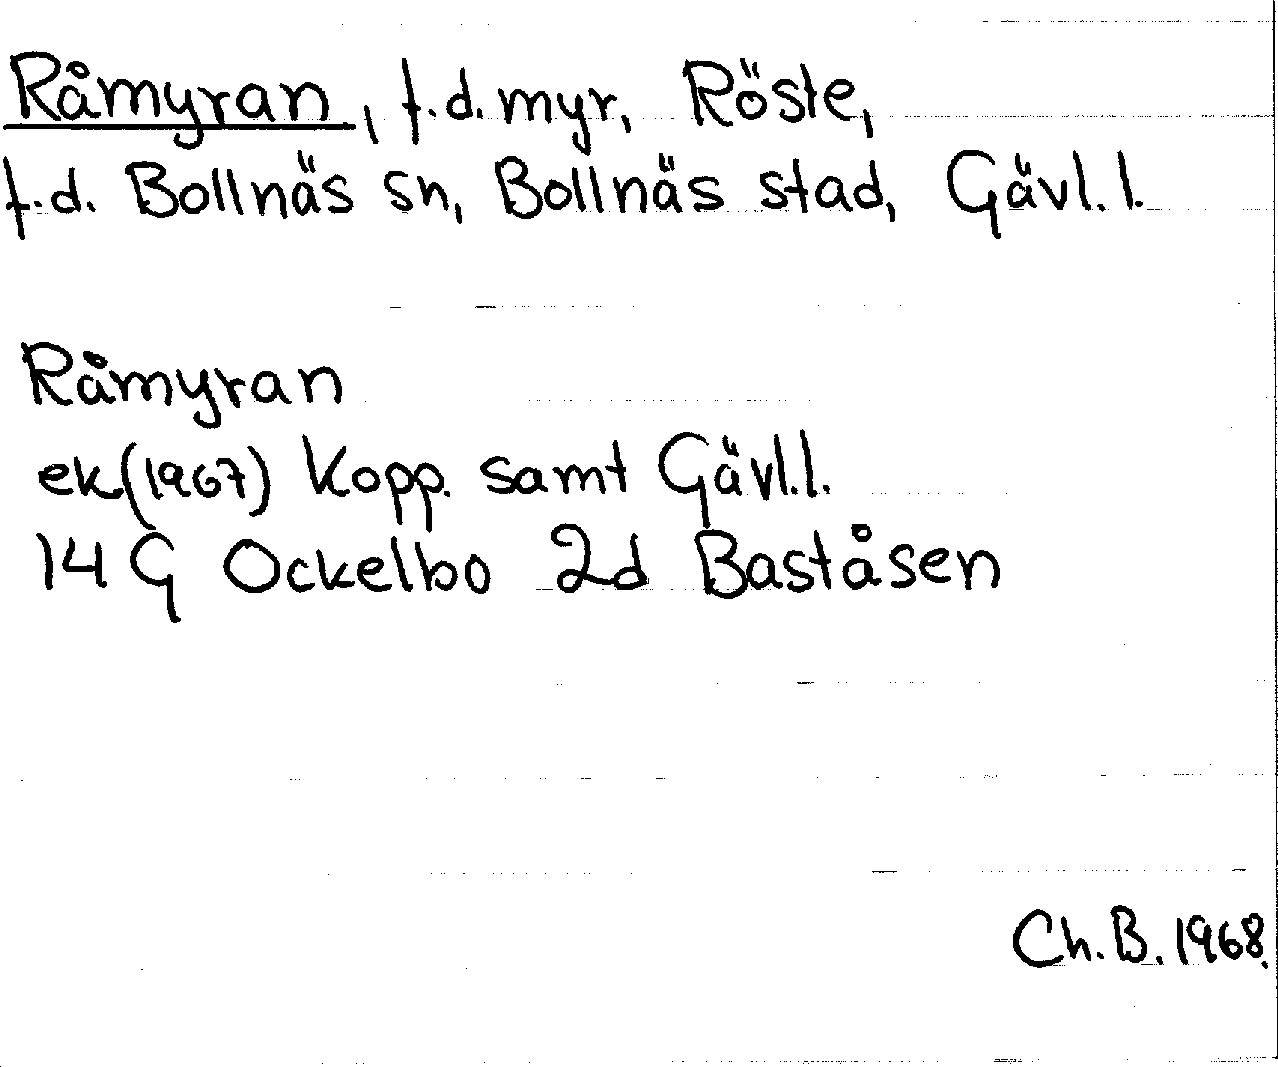 Råmyran, f.d. myr, Röste,
f.d. Bollnäs sn, Bollnäs stad, Gävl.l.
Råmyran
ek(1967) Kopp. samt Gävl.l.
14 G Ockelbo 2d Baståsen
Ch.B. 1968.